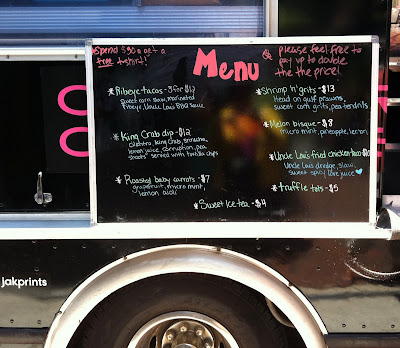 Spend $30 & get a
free t-shirt!
Menu
& please feel free to
pay up to double
the the price!
* Ribeye tacos - 3 for $12
sweet corn slaw, marinated
ribeye, Uncle Lou's BBQ sauce
* King Crab dip - $12
cilantro, king crab, sriracha,
lemon juice, corruption, pea
shoots served with tortilla chips
* Roasted baby carrots - $7
grapefruit, micro mint,
lemon aioli
* Sweet Ice tea - $4
* Shrimp n' grits - $13
Head on gulf prawns,
sweet corn grits, pea tendrils
* Melon bisque - $8
micro mint, pineapple, lemon
* Uncle Lou's fried chicken taco
Uncle Lou's dredge, slaw,
sweet spicy love juice
* truffle tots - $5
jakprints